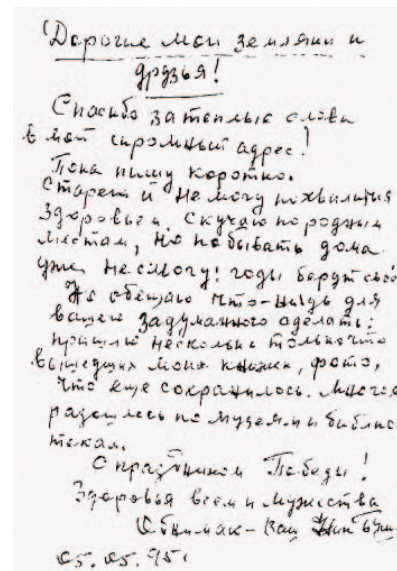 Дорогие мои земляки и
друзья!
Спасибо за теплые слова
в мой скромный адрес!
Пока пишу коротко.
Старею и не могу похвалиться
здоровьем. Скучаю по родным
местам, но побывать дома
уже не смогу! годы берут своё
Но обещаю что-нибудь для
вашего задуманного сделать:
пришлю несколько только что
вышедших моих книжек, фото,
что еще сохранилось. Многое
разошлось по музеям и библио
текам.
С праздником Победы!
Здоровья всем и мужества
Обнимаю - Ваш
05.05.95.